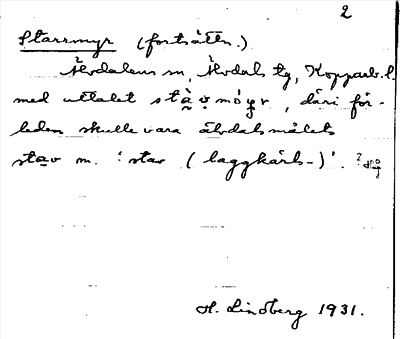 2
Starrmyr (fortsättn.)
Älvdalens sn, Älvdals tg, Kopparb. l.
med uttalet stàv̥mỏyr, däri för-
leden skulle vara älvdalsmålets
stav m. 'stav (laggkärls-)'. ?
H. Lindberg 1931.